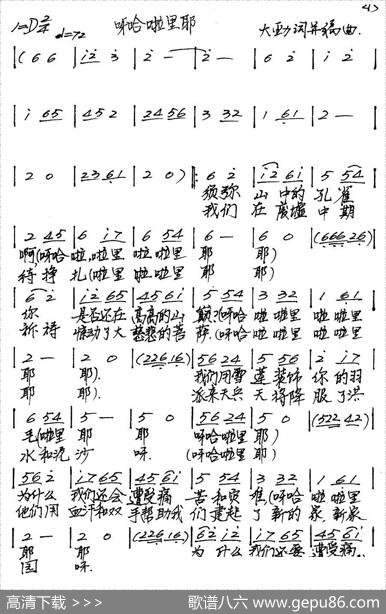 43
1=D 2/4 ♩=72 呀哈啦里耶 大勐词并编曲.
|(6 6 | i2 3 | 2 — | 2 — | 6 2 | i 2 |
| i 65 | 452 | 2456 | 3 32 | 1 61 | 2 — |
| 2 0 | 2361 | 2 0 )‖: 6 2 | i26i | 5 54 |
须弥 山中的 孔雀
我们 在废墟 中期
| 2 45 | 6 i7 | 6 54 | 6 — | 6 0 | (66626) |
啊(呀哈 啦,啦里 啦啦里 耶 耶)
待挣 扎(啦里 啦啦里 耶 耶)
| 6 2 | i265 | 4561 | 5 54 | 3 32 | 1 61 |
你 是否还在 高高的山 颠?(呀哈 啦啦里 啦啦里
祈祷 惊动了大 慈悲的菩 萨.(呀哈 啦啦里 啦啦里
| 2 — | 2 0 | (22616) | 5624 | 5 56 | 2 i7 |
耶 耶). 我们用雪 莲装饰 你的羽
耶 耶). 派来天兵 天将降 服了洪
| 6 54 | 5 — | 5 0 | 5624 | 5 0 | (52242) |
毛(啦里 耶 耶 呀哈啦里 耶)
水和泥 沙 呀. (呀哈啦里 耶)
| 562 | i765 | 456i | 5 54 | 3 32 | 1 61 |
为什么 我们还会 遭受痛 苦和灾 难(呀哈 啦啦里
他们用 血汗和双 手帮助我 们建起 了新的 家新家
| 2 — | 2 0 | (22616) | 62i2 | i765 | 456i |
耶 耶). 为什么 我们还要 遭受痛..
园 呀.
高清下载 >>> 歌谱八六 www.gepu86.com